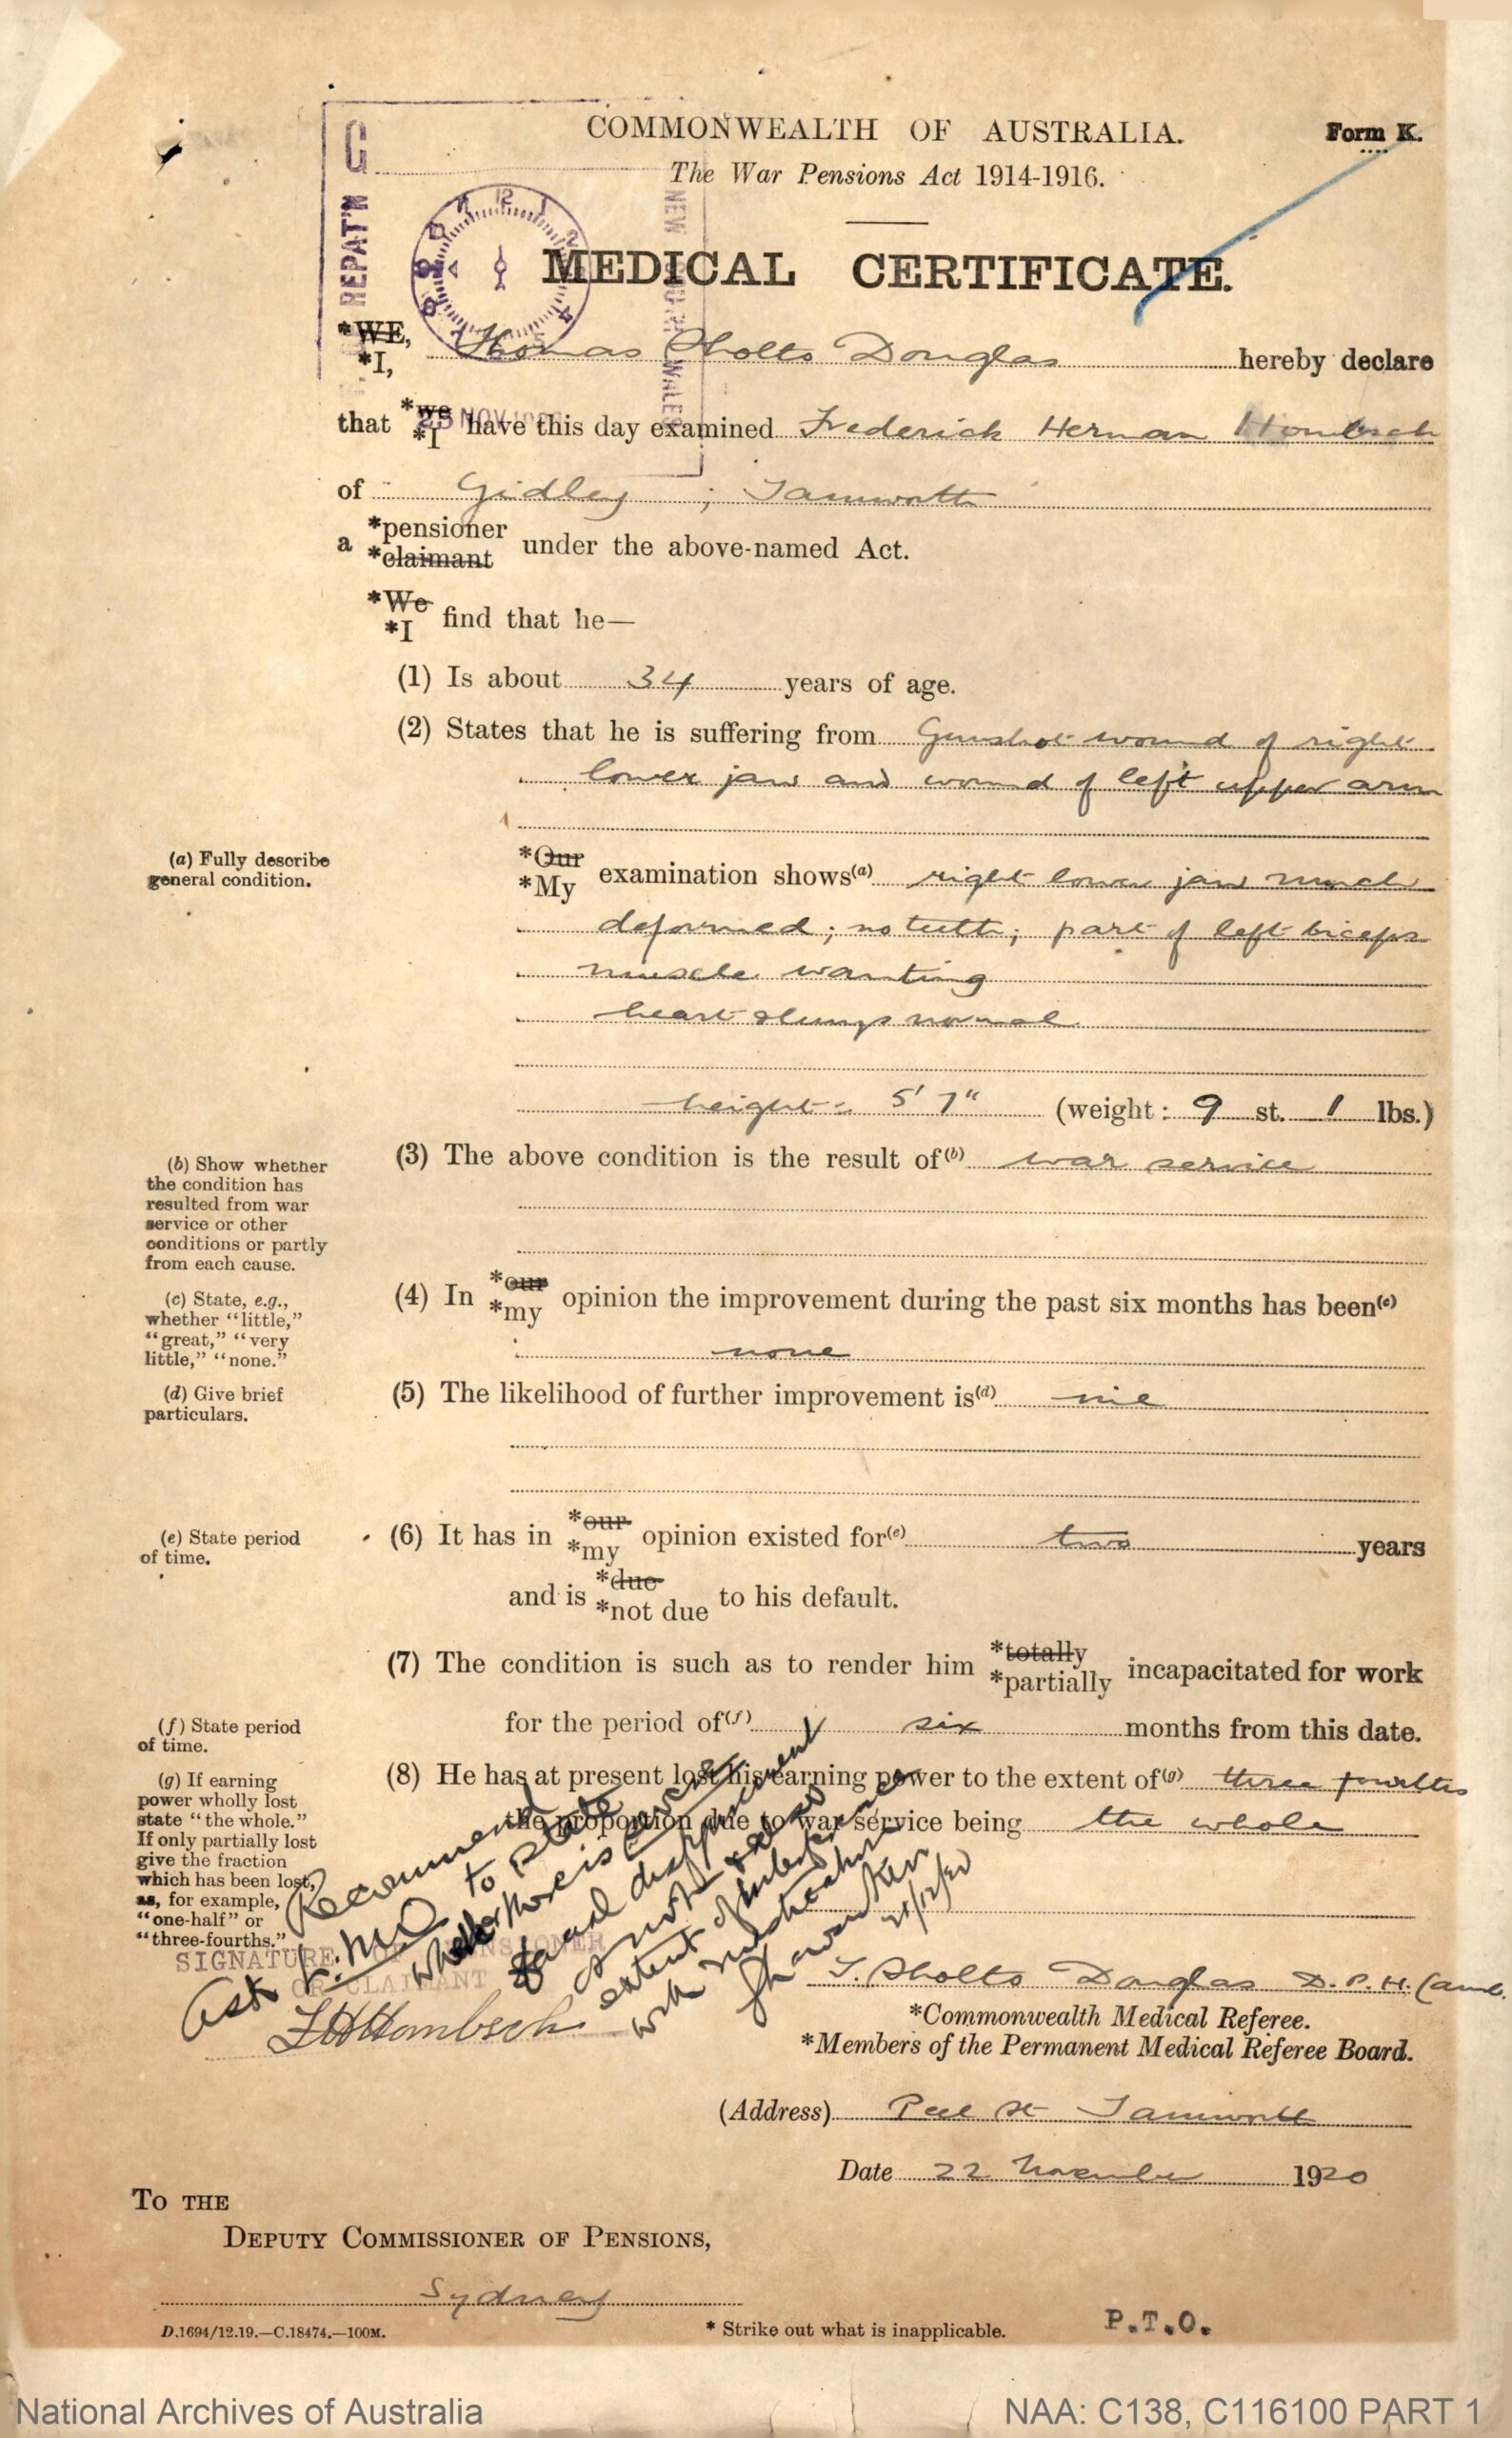 COMMONWEALTH OF AUSTRALIA.
Form K.
The War Pensions Act 1914-1916.
REPAT'N C
NEW WALES
12
MEDICAL CERTIFICATE.
*WE,
*I, Thomas Sholto Douglas hereby declare
that *we
*I have this day examined Frederick Herman Hombsch
23 NOV
of Gidley ; Tamworth
a *pensioner
*claimant under the above-named Act.
*We
*I find that he—
(1) Is about 34 years of age.
(2) States that he is suffering from Gunshot wound of right
lower jaw and wound of left upper arm
(a) Fully describe
general condition.
*Our
*My examination shows(a) right lower jaw much
deformed ; no teeth ; part of left biceps
muscle wanting
heart & lungs normal
height = 5' 7" (weight : 9 st. 1 lbs.)
(b) Show whether
the condition has
resulted from war
service or other
conditions or partly
from each cause.
(3) The above condition is the result of(b) war service
(c) State, e.g.,
whether "little,"
"great," "very
little," "none."
(4) In *our
*my opinion the improvement during the past six months has been(c)
none
(d) Give brief
particulars.
(5) The likelihood of further improvement is(d) nil
(e) State period
of time.
(6) It has in *our
*my opinion existed for(e) two years
and is *due
*not due to his default.
(7) The condition is such as to render him *totally
*partially incapacitated for work
(f) State period
of time.
for the period of(f) six months from this date.
(g) If earning
power wholly lost
state "the whole."
If only partially lost
give the fraction
which has been lost,
as, for example,
"one-half" or
"three-fourths."
(8) He has at present lost his earning power to the extent of(g) three fourths
the proportion due to war service being the whole
Recommend
Ask L.M.O. to state
whether there is severe
facial disfigurement
or not & also
extent of interference
with mastication
21/12/20
SIGNATURE OF PENSIONER
OR CLAIMANT
F H Hombsch
T. Sholto Douglas D.P.H. (Camb.
*Commonwealth Medical Referee.
*Members of the Permanent Medical Referee Board.
(Address) Peel St Tamworth
Date 22 November 1920
To THE
DEPUTY COMMISSIONER OF PENSIONS,
Sydney
D.1694/12.19.—C.18474.—100M.
* Strike out what is inapplicable.
P.T.O.
National Archives of Australia
NAA: C138, C116100 PART 1